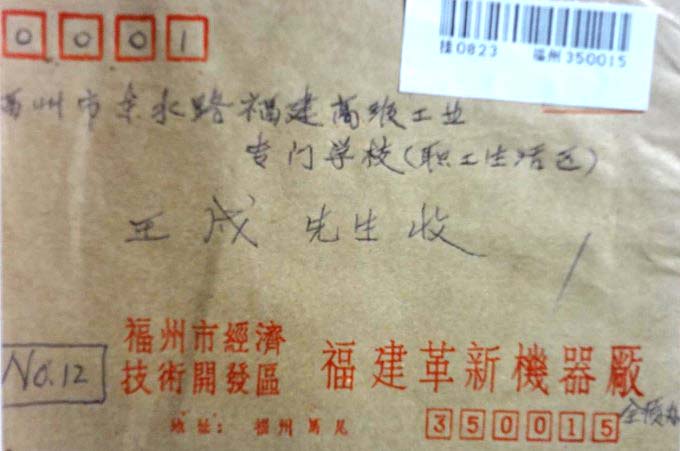 0001
桂0823 福州350015
州市京水路福建高级工业
专门学校(职工生活区)
王成 先生收
No.12
福州市經濟
技術開發區
福建革新機器廠
地址: 福州馬尾
350015